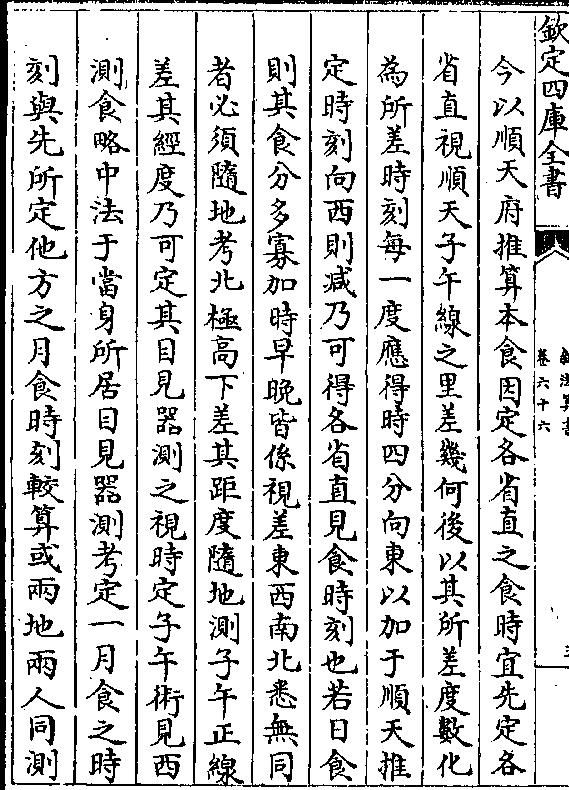 欽定四庫全書
卷六十六
今以順天府推算本食因定各省直之食時宜先定各
省直視順天子午線之里差幾何後以其所差度數化
為所差時刻每一度應得時四分向東以加于順天推
定時刻向西則減乃可得各省直見食時刻也若日食
則其食分多寡加時早晚皆係視差東西南北悉無同
者必須隨地考北極高下差其距度隨地測子午正線
差其經度乃可定其目見器測之視時定子午術見西
測食略中法于當身所居目見器測考定一月食之時
刻與先所定他方之月食時刻較算或兩地兩人同測